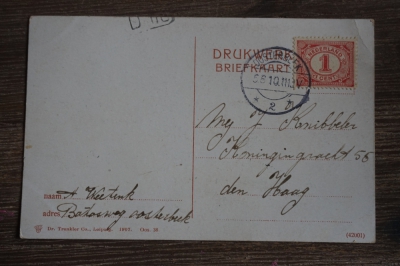 DRUKWERK
BRIEFKAART
NEDERLAND
1
CENT
Mej J Knibbeler
Koninginnegracht 56
den Haag
naam A Weetink
adres Oosterbeek
Dr. Trenkler Co., Leipzig 1907. Oos. 26
(43001)